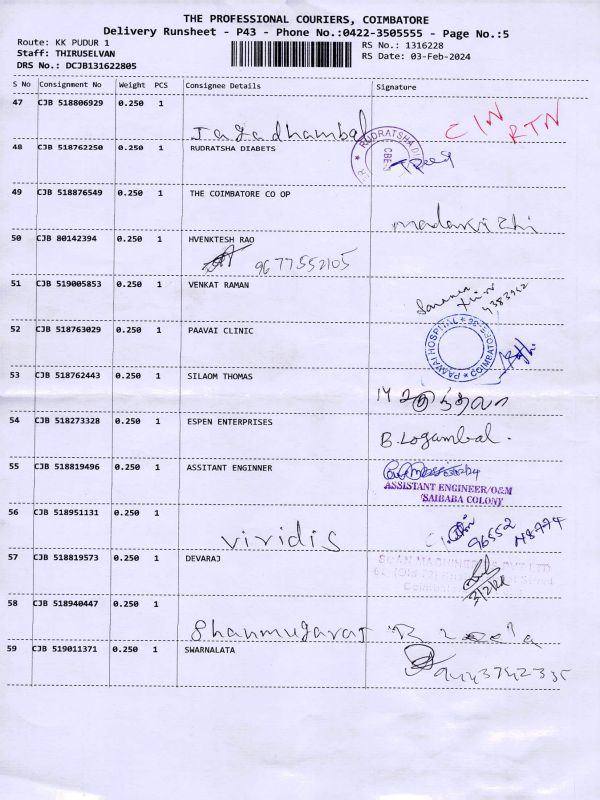 THE PROFESSIONAL COURIERS, COIMBATORE
Delivery Runsheet - P43 - Phone No.:0422-3505555 - Page No.:5
Route: KK PUDUR 1 RS No.: 1316228
Staff: THIRUSELVAN RS Date: 03-Feb-2024
DRS No.: DCJB131622805
S No Consignment No Weight PCS Consignee Details Signature
47 CJB 518806929 0.250 1 Jagadhambal CIN RTN
48 CJB 518762250 0.250 1 RUDRATSHA DIABETS RUDRATSHA
49 CJB 518876549 0.250 1 THE COIMBATORE CO OP
50 CJB 80142394 0.250 1 HVENKTESH RAO
9677552105
51 CJB 519005853 0.250 1 VENKAT RAMAN
52 CJB 518763029 0.250 1 PAAVAI CLINIC HOSPITAL
53 CJB 518762443 0.250 1 SILAOM THOMAS
54 CJB 518273328 0.250 1 ESPEN ENTERPRISES B. Logambal.
55 CJB 518819496 0.250 1 ASSITANT ENGINNER
ASSISTANT ENGINEER/O&M
SAIBABA COLONY
56 CJB 518951131 0.250 1 viridis 96552 48774
57 CJB 518819573 0.250 1 DEVARAJ
58 CJB 518940447 0.250 1 Shanmugaraj
59 CJB 519011371 0.250 1 SWARNALATA 9443742335